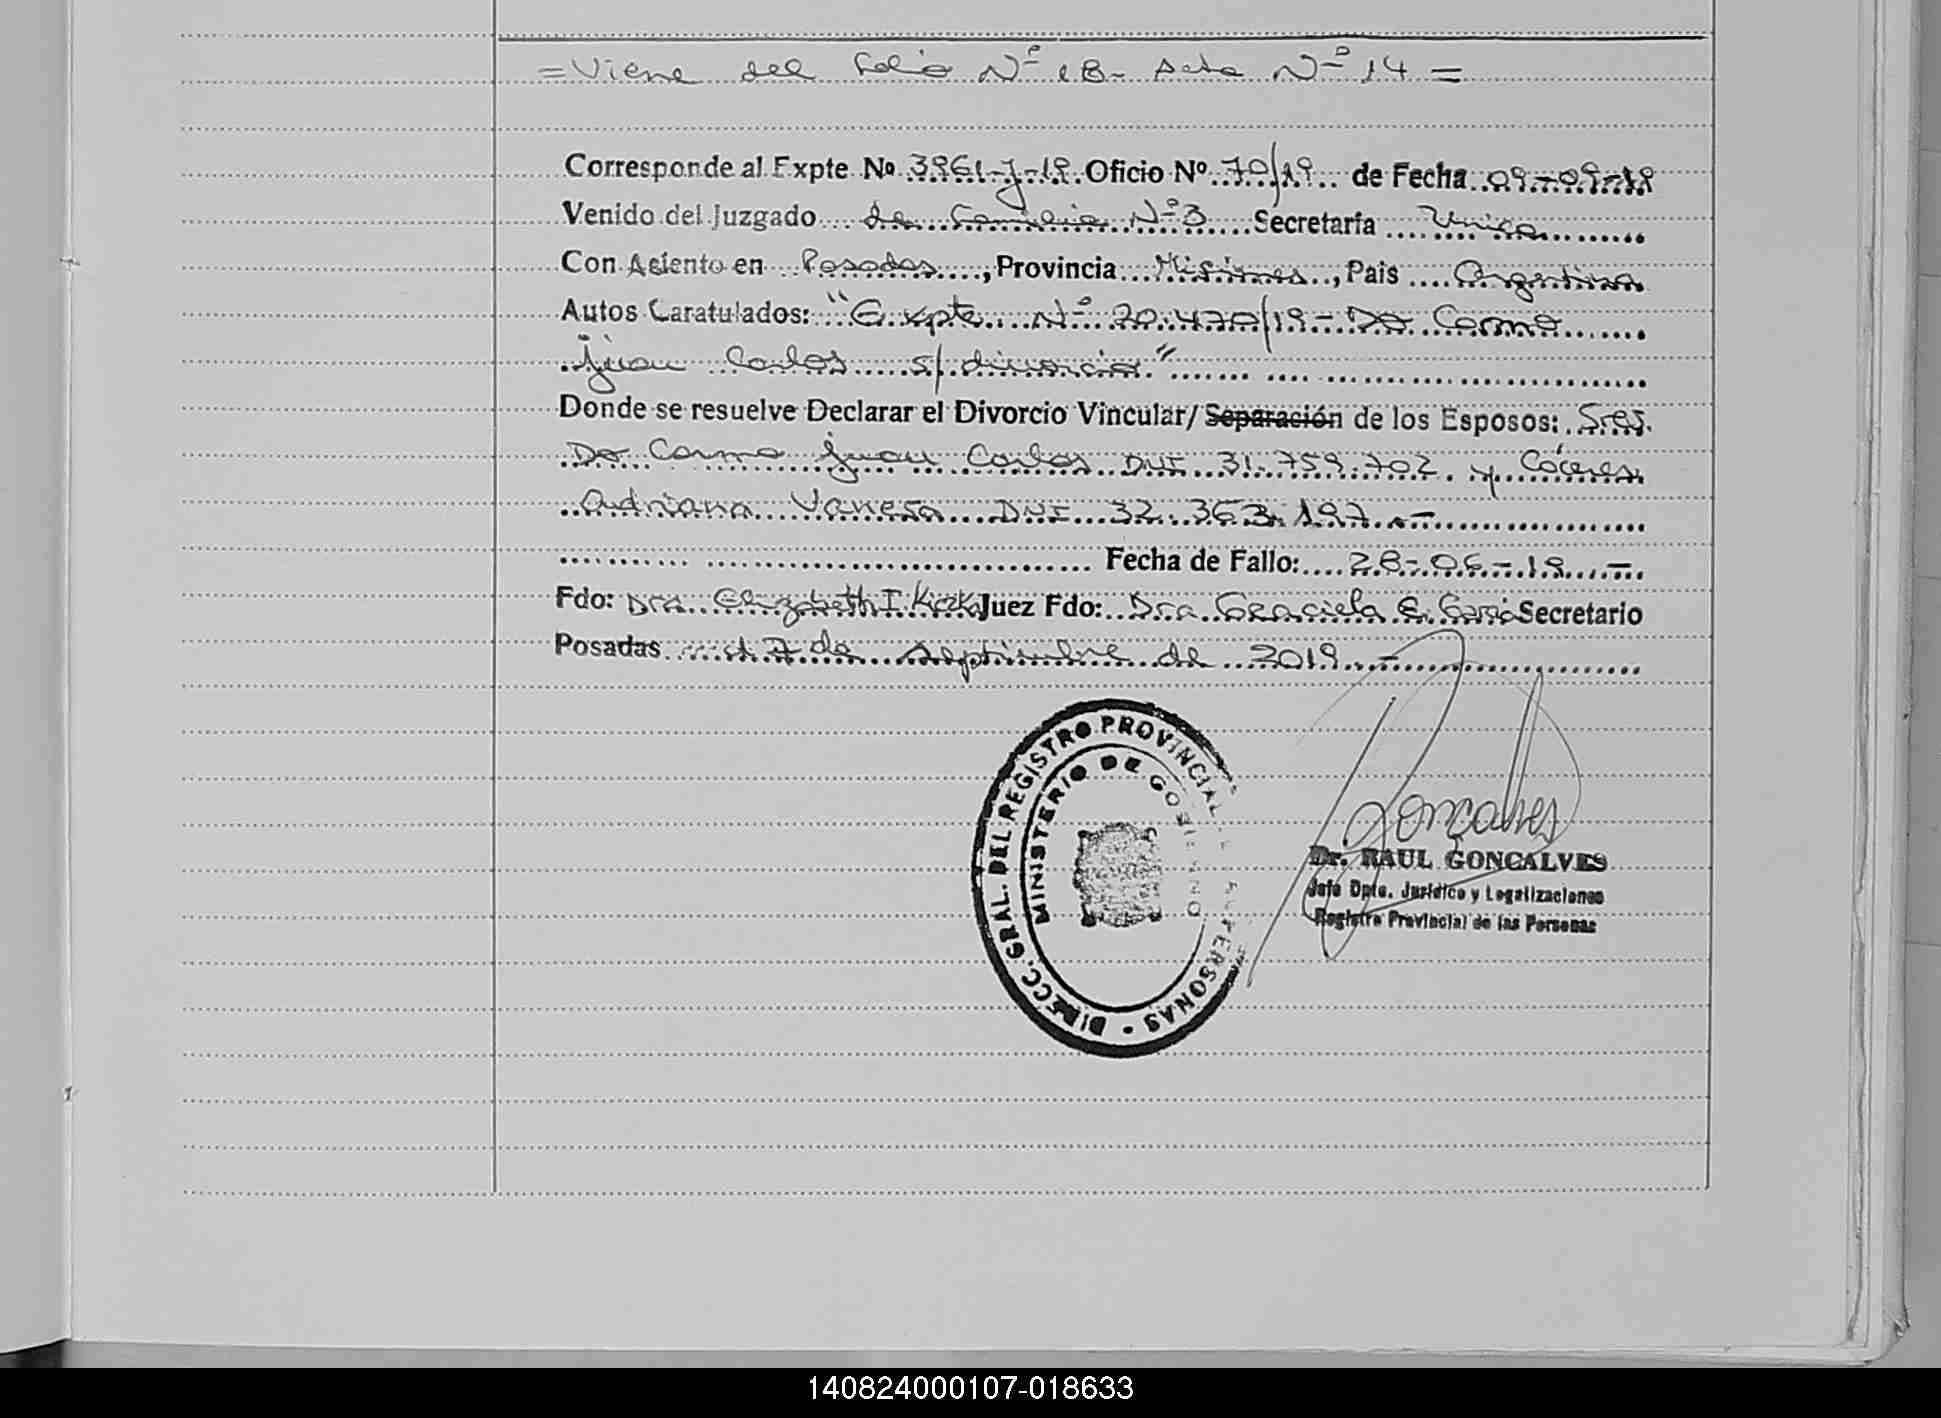 = Viene del folio Nº 18 - Acta Nº 14 =
Corresponde al Expte Nº 3961-J-19. Oficio Nº 70/19 de Fecha 09-09-19
Venido del Juzgado de Familia Nº 3 Secretaría Unica
Con Asiento en Posadas, Provincia Misiones, Pais Argentina
Autos Caratulados: "Expte. Nº 20.470/19 - Do Carmo
Juan Carlos s/ divorcio."
Donde se resuelve Declarar el Divorcio Vincular/ Separación de los Esposos: Sres.
Do Carmo Juan Carlos DNI 31.759.702. y Cáceres
Adriana Vanesa DNI 32.363.197.-
Fecha de Fallo: 28-06-19.-
Fdo: Dra. Elizabeth I. Juez Fdo: Dra. Graciela E. Secretario
Posadas 17 de septiembre de 2019.-
DIRECC. GRAL. DEL REGISTRO PROVINCIAL DE LAS PERSONAS
MINISTERIO DE GOBIERNO
Gonçalves
Dr. RAUL GONCALVES
Jefe Dpto. Jurídico y Legalizaciones
Registro Provincial de las Personas
140824000107-018633